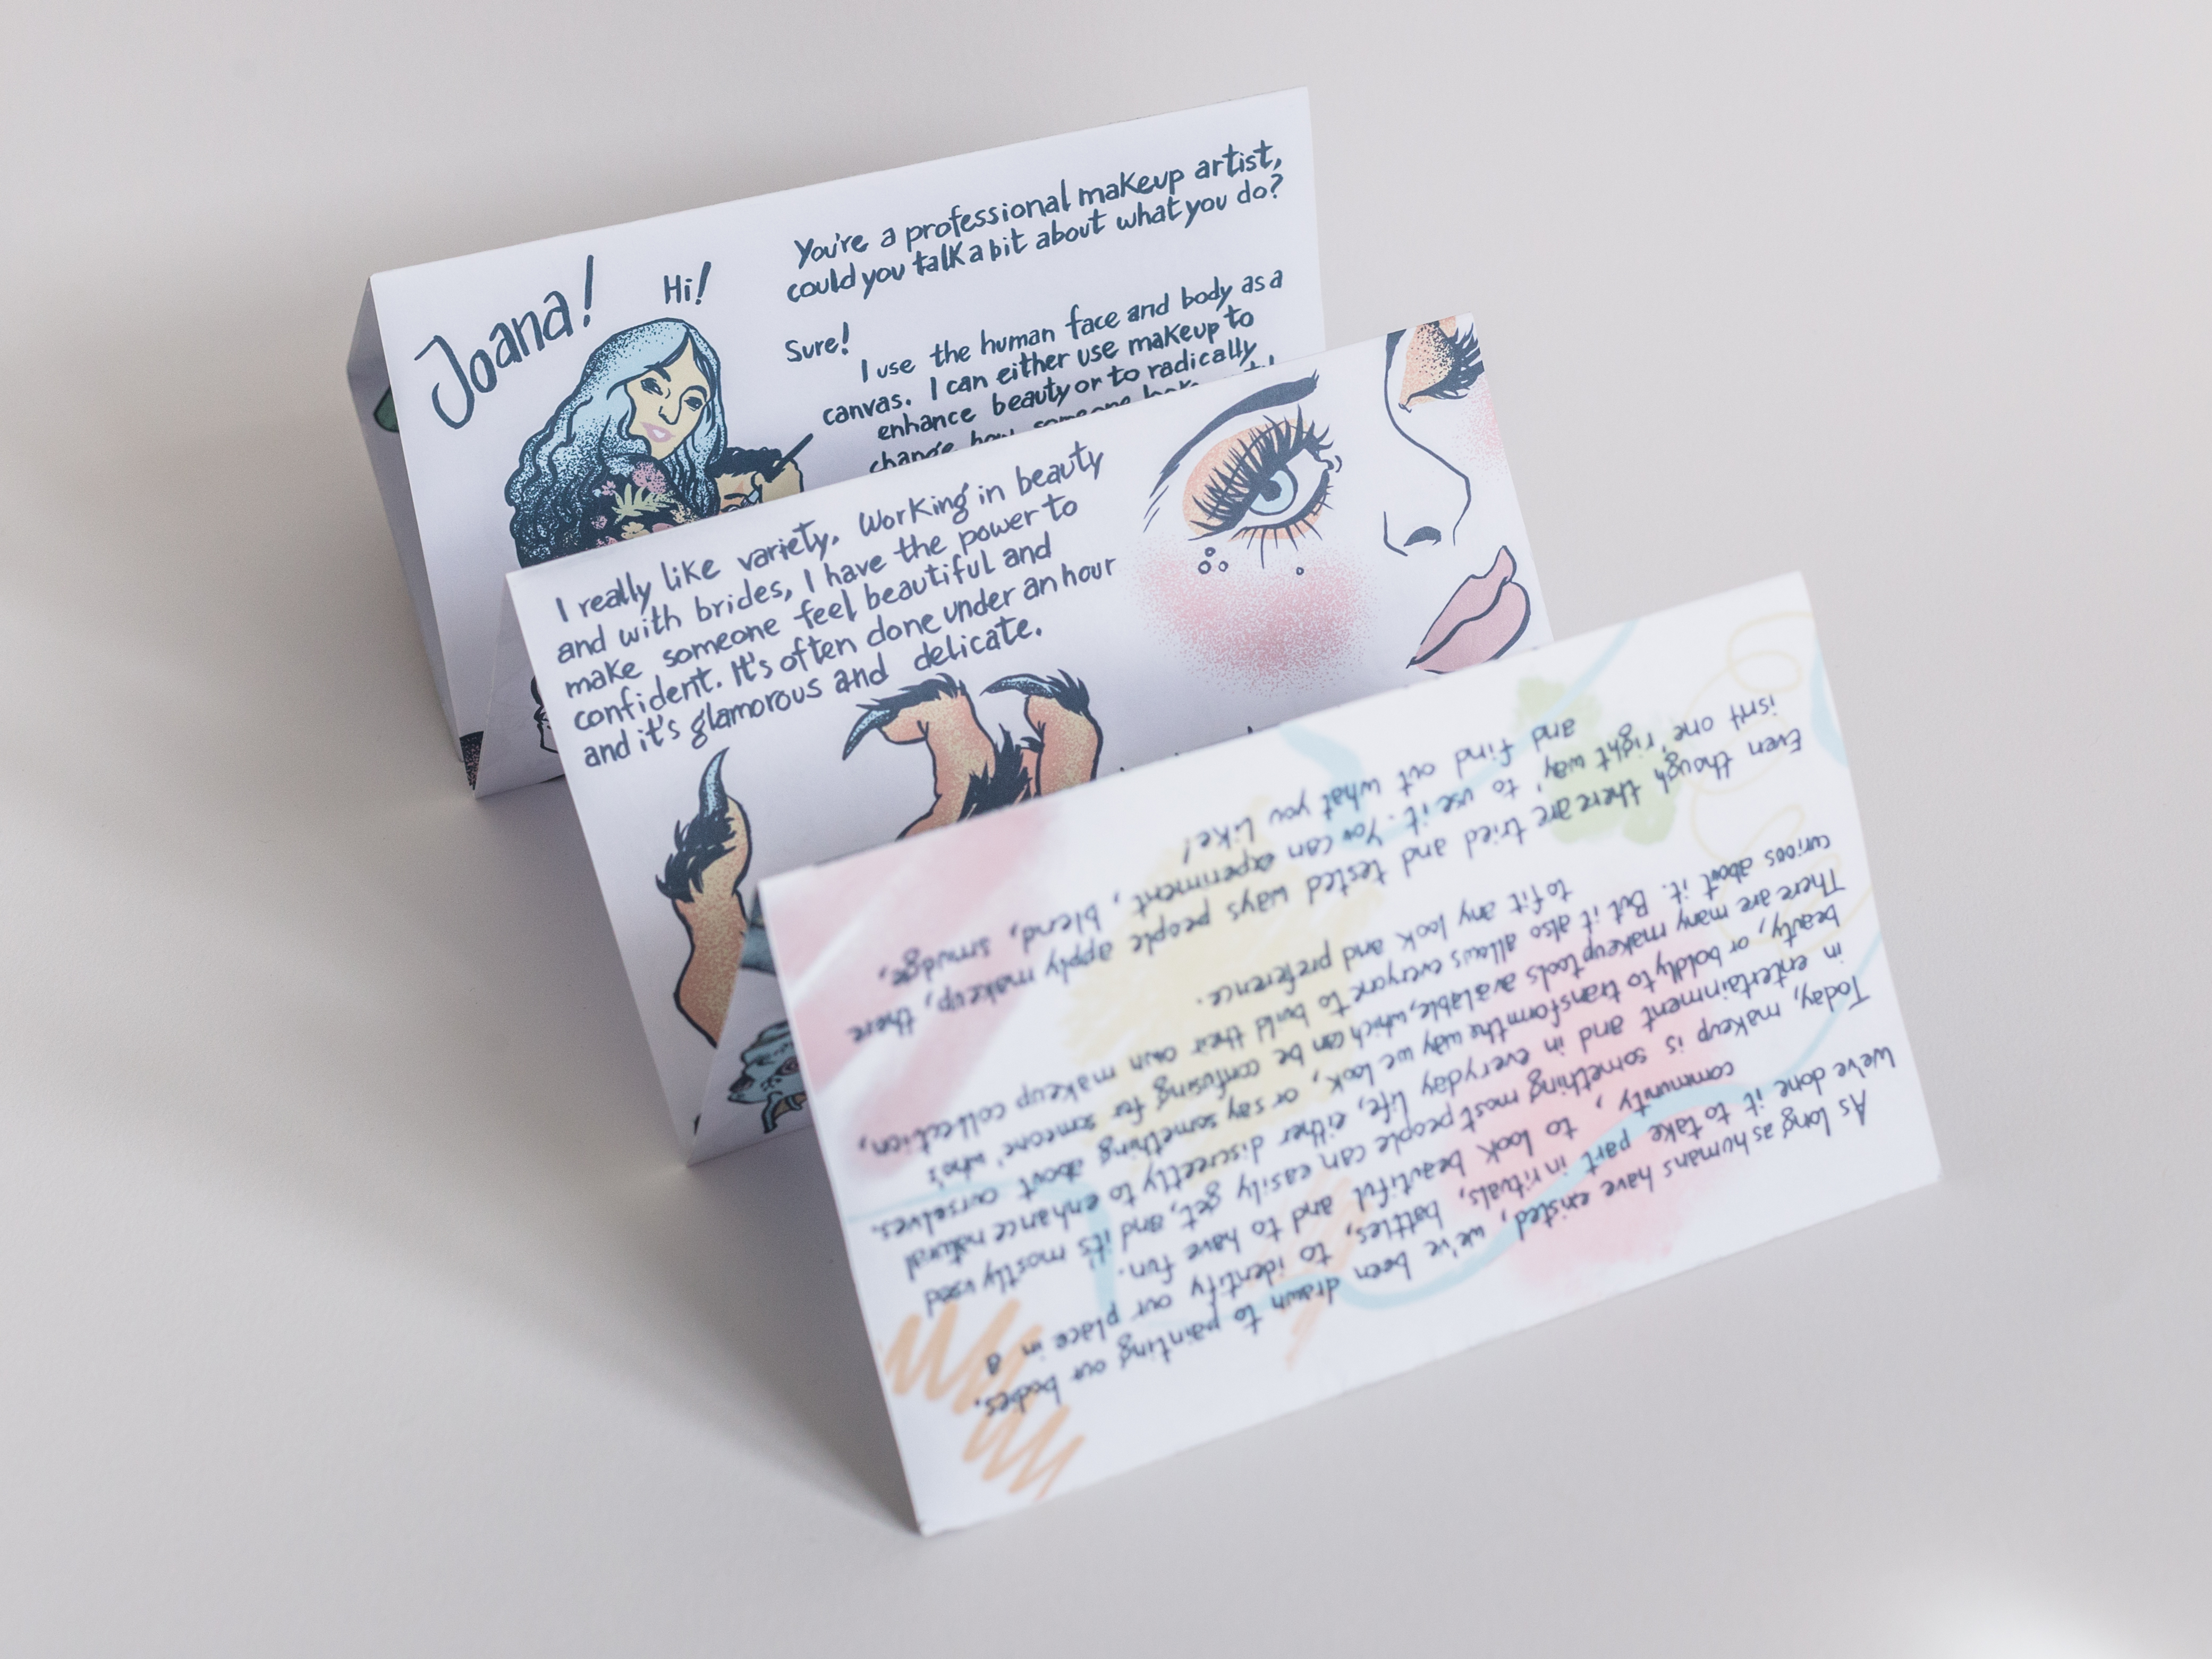 Joana!
Hi!
You're a professional makeup artist,
could you talk a bit about what you do?
Sure!
I use the human face and body as a
canvas. I can either use makeup to
enhance beauty or to radically
change how someone
I really like variety. Working in beauty
and with brides, I have the power to
make someone feel beautiful and
confident. It's often done under an hour
and it's glamorous and delicate.
As long as humans have existed, we've been drawn to painting our bodies.
We've done it to take part in rituals, battles, to identify our place in a
community, to look beautiful and to have fun.
Today, makeup is something most people can easily get, and it's mostly used
in entertainment and in everyday life, either discreetly to enhance natural
beauty, or boldly to transform the way we look, or say something about ourselves.
There are many makeup tools available, which can be confusing for someone who's
curious about it. But it also allows everyone to build their own makeup collection,
to fit any look and preference.
Even though there are tried and tested ways people apply makeup, there
isn't one 'right way' to use it. You can experiment, blend, smudge,
and find out what you like!